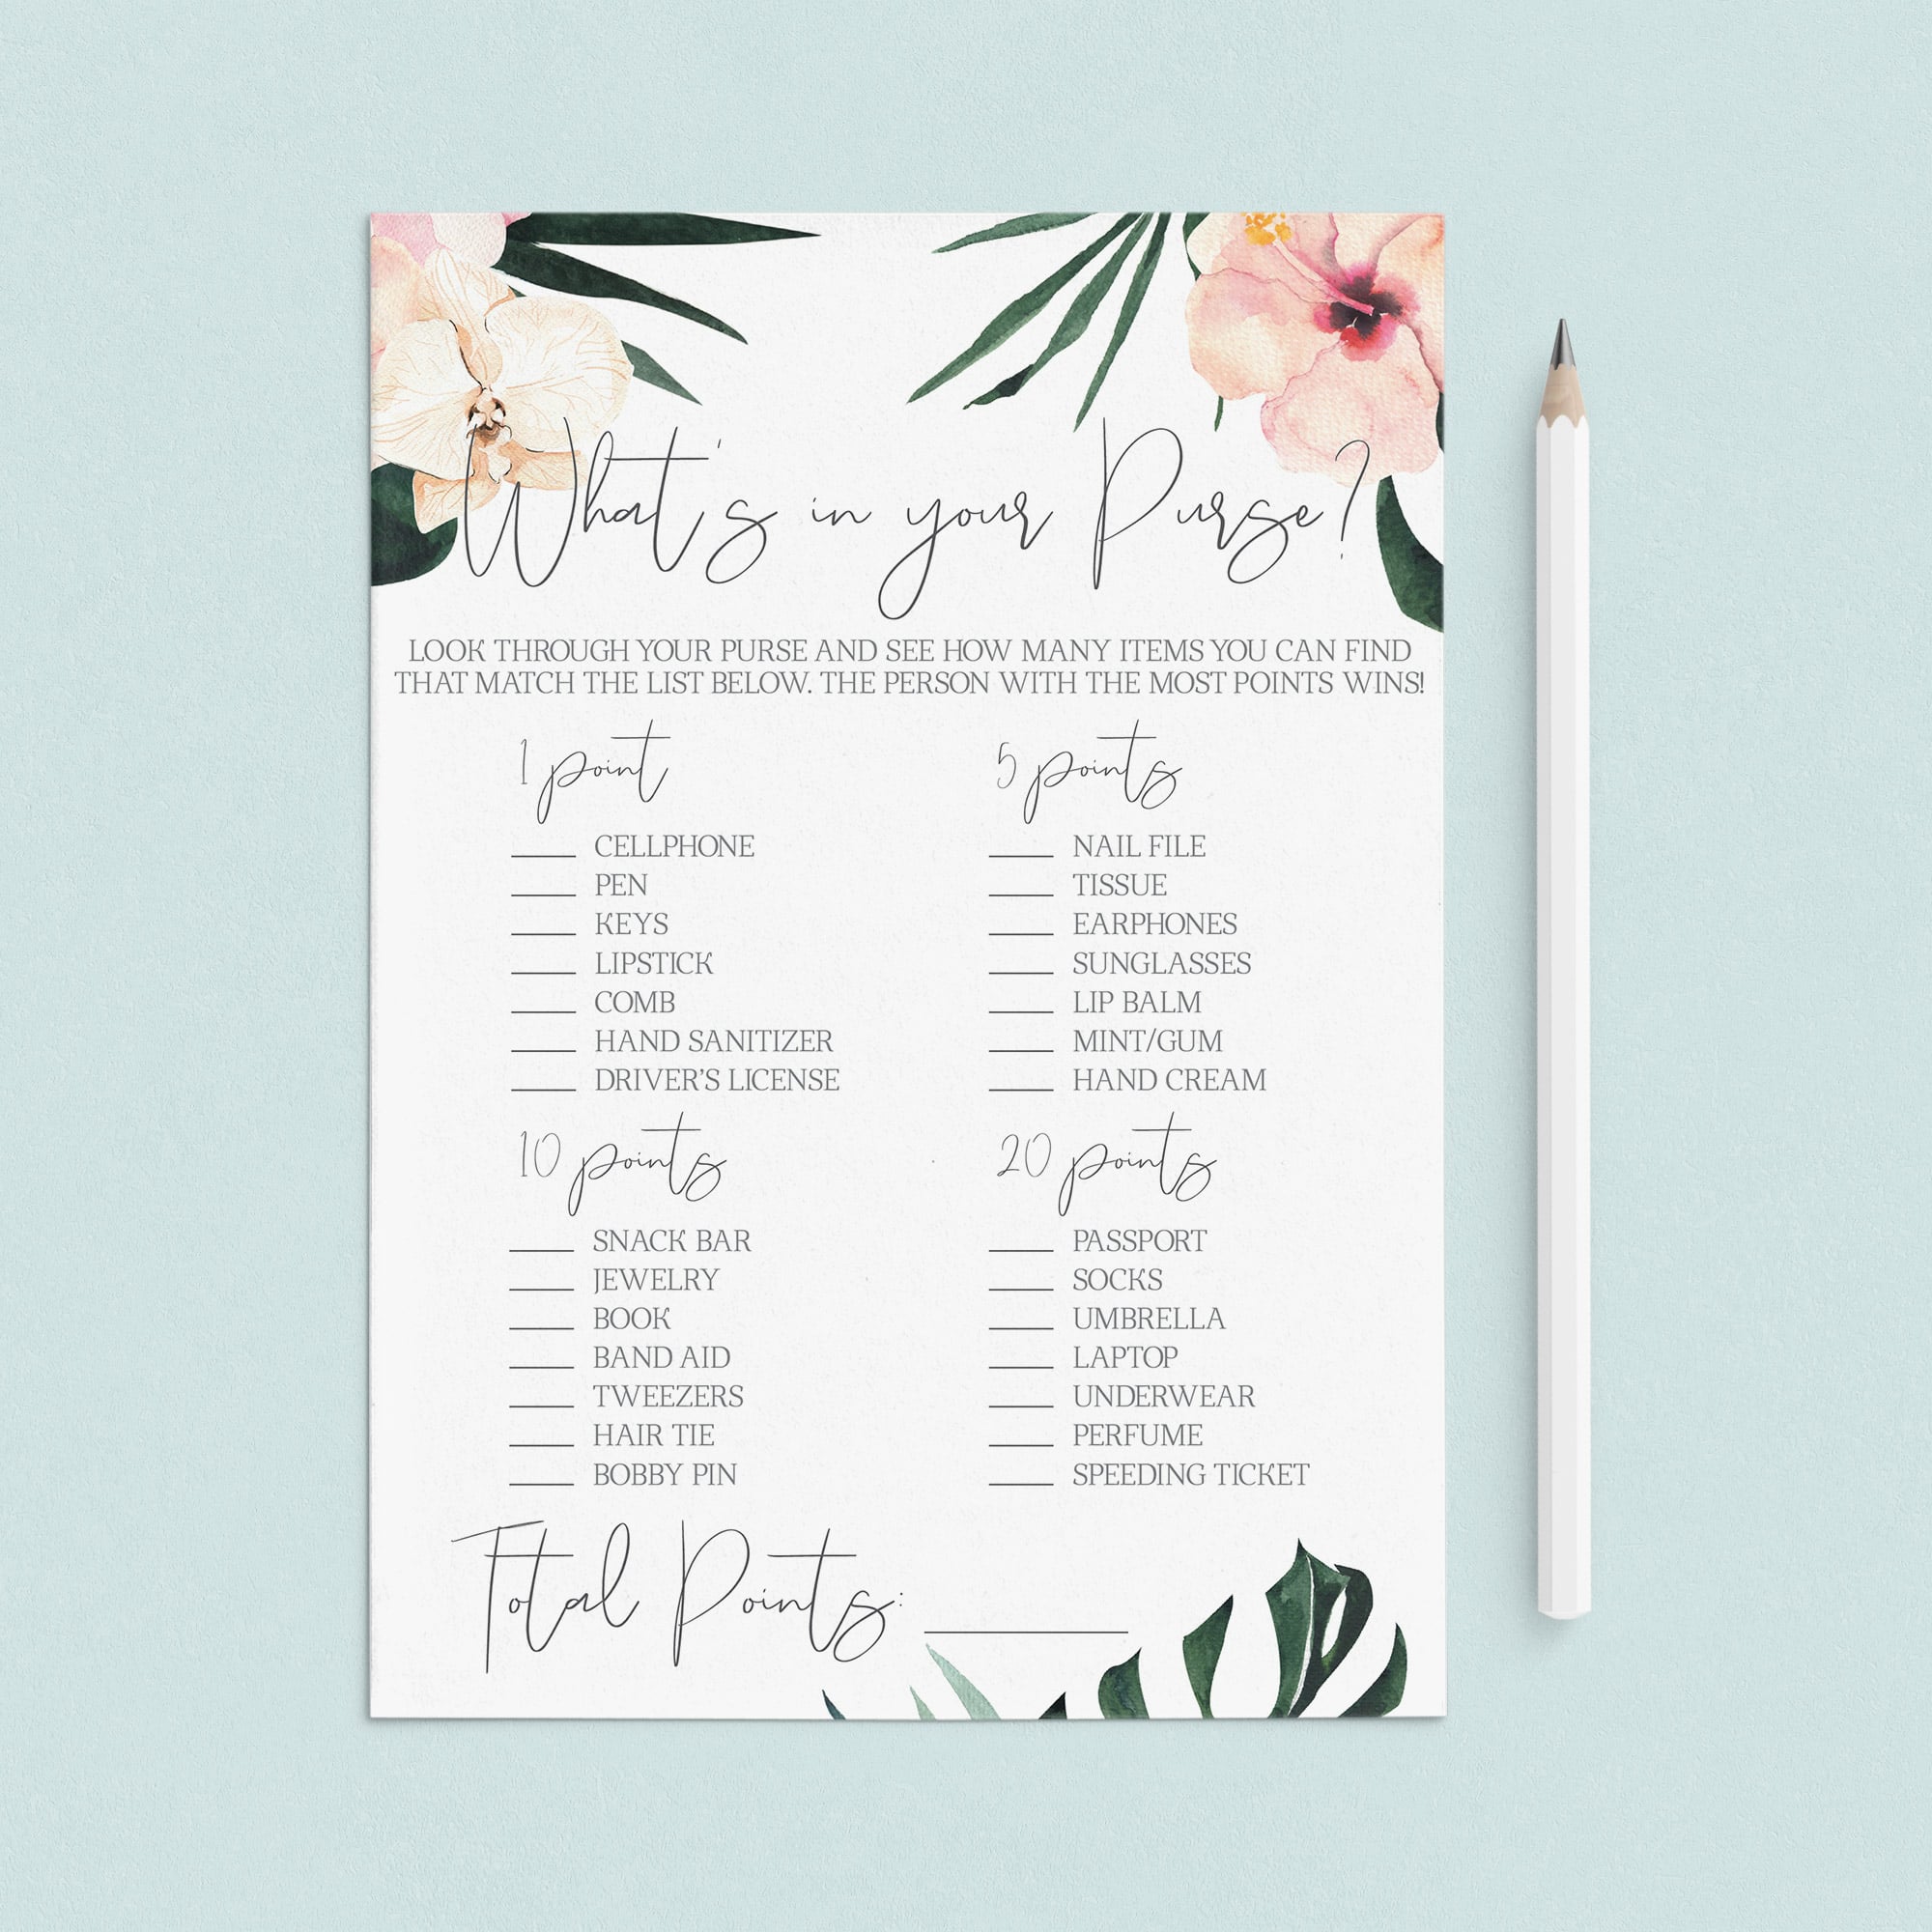 What's in your Purse?
LOOK THROUGH YOUR PURSE AND SEE HOW MANY ITEMS YOU CAN FIND
THAT MATCH THE LIST BELOW. THE PERSON WITH THE MOST POINTS WINS!
1 point
CELLPHONE
PEN
KEYS
LIPSTICK
COMB
HAND SANITIZER
DRIVER'S LICENSE
5 points
NAIL FILE
TISSUE
EARPHONES
SUNGLASSES
LIP BALM
MINT/GUM
HAND CREAM
10 points
SNACK BAR
JEWELRY
BOOK
BAND AID
TWEEZERS
HAIR TIE
BOBBY PIN
20 points
PASSPORT
SOCKS
UMBRELLA
LAPTOP
UNDERWEAR
PERFUME
SPEEDING TICKET
Total Points: